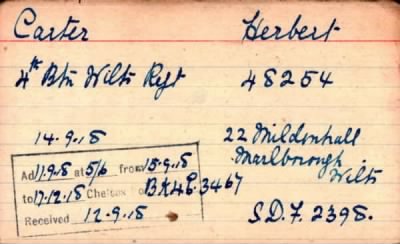 Carter Herbert
4th Btn Wilts Regt 48254
14.9.18 22 Mildenhall
Marlborough
Wilts
Ad 11.9.18 at 5/6 from 15.9.18
to 17.12.18 Chelsea
BK46.3467
Received 12.9.18
S.D.F. 2398.